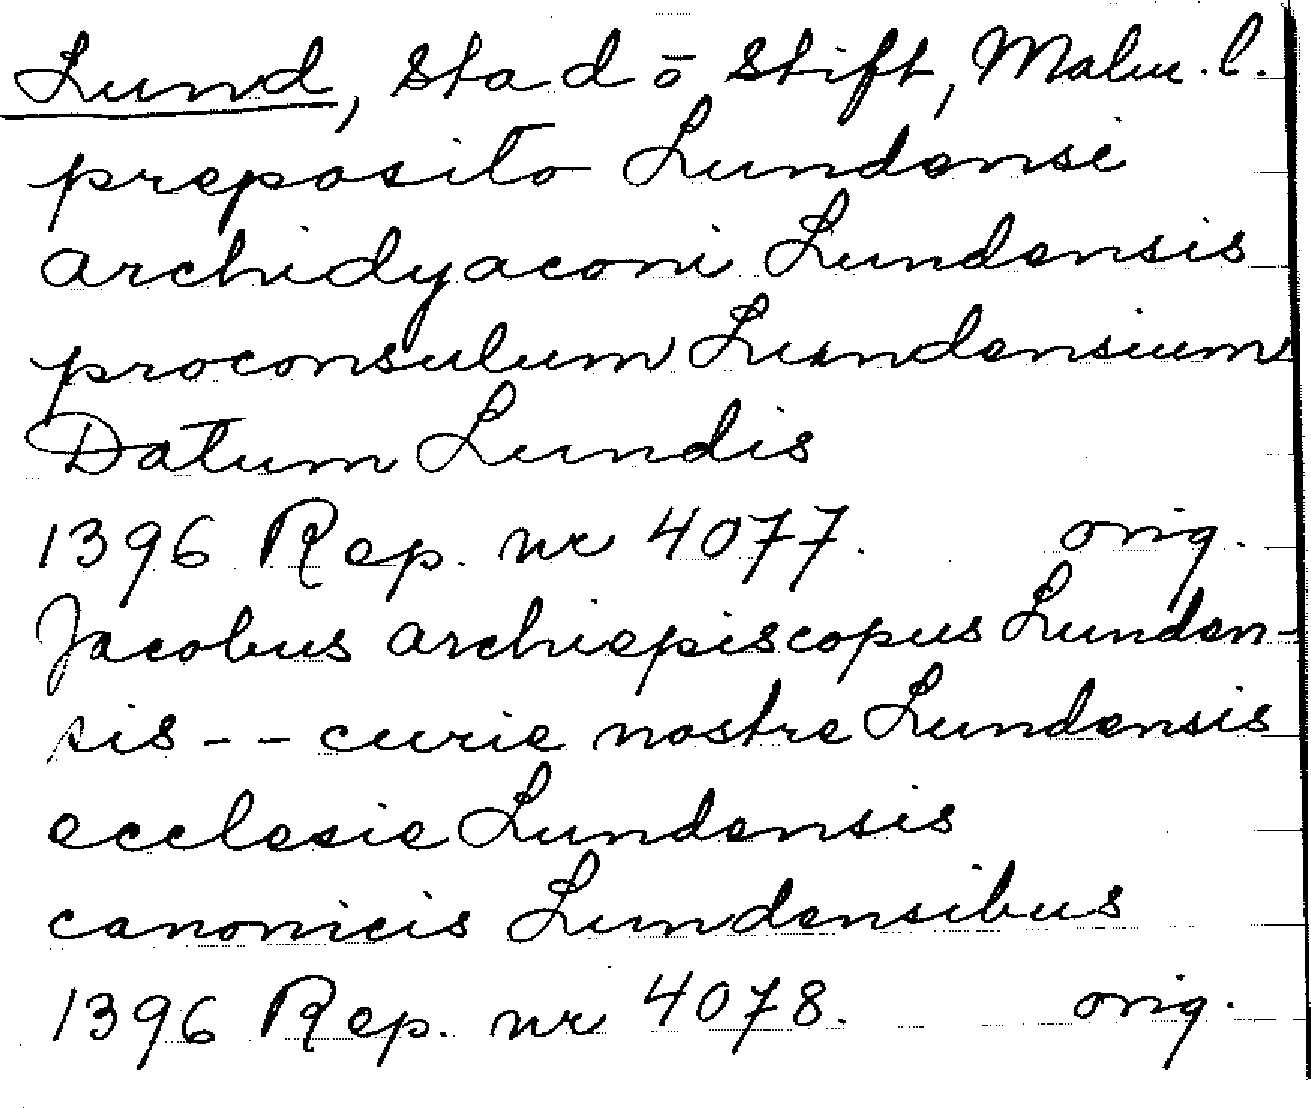 Lund, stad o stift, Malm. l.
preposito Lundensi
archidyaconi Lundensis
proconsulum Lundensium
Datum Lundis
1396 Rep. nr 4077. orig.
Jacobus archiepiscopus Lunden-
sis - - curie nostre Lundensis
ecclesie Lundensis
canonicis Lundensibus
1396 Rep. nr 4078. orig.